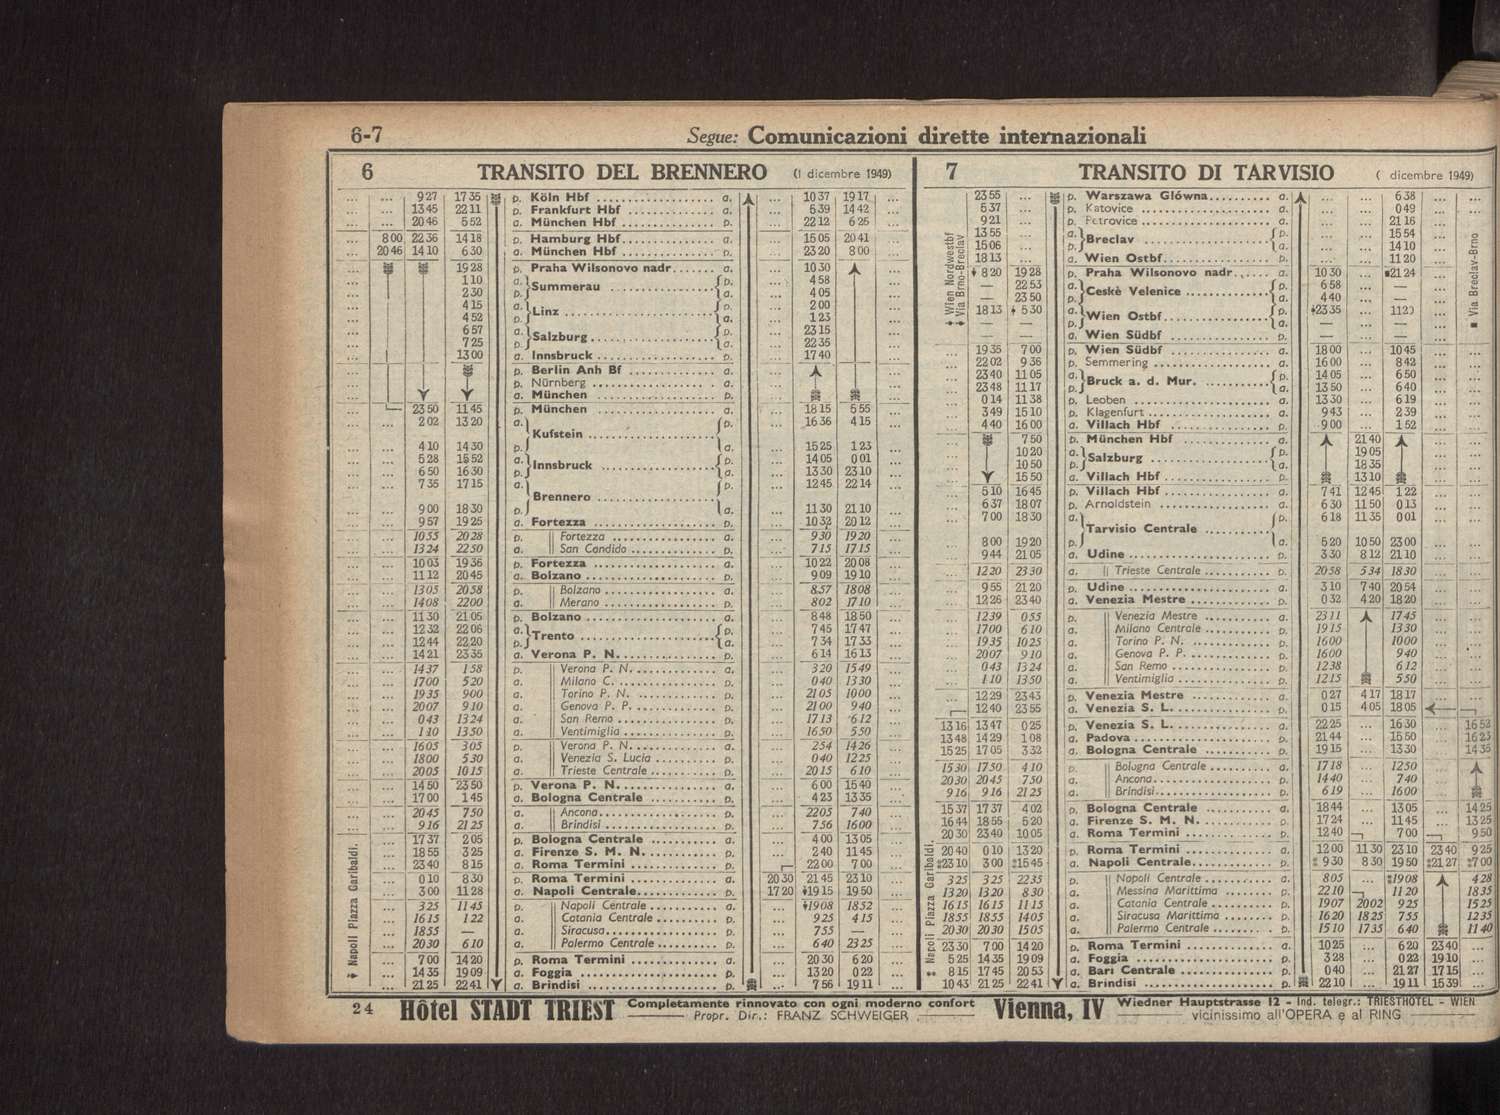 6-7 Segue: Comunicazioni dirette internazionali
6 TRANSITO DEL BRENNERO (1 dicembre 1949)
... ... 9 27 17 35 p. Köln Hbf a. ... 10 37 19 17 ...
... ... 13 45 22 11 p. Frankfurt Hbf a. ... 6 39 14 42 ...
... ... 20 46 5 52 a. München Hbf p. ... 22 12 6 25 ...
... 8 00 22 36 14 18 p. Hamburg Hbf a. ... 15 05 20 41 ...
... 20 46 14 10 6 30 a. München Hbf p. ... 23 20 8 00 ...
... 19 28 p. Praha Wilsonovo nadr a. ... 10 30 ...
... 1 10 a. Summerau p. ... 4 58 ...
... 2 30 p. a. ... 4 05 ...
... 4 15 a. Linz p. ... 2 00 ...
... 4 52 p. a. ... 1 23 ...
... 6 57 a. Salzburg p. ... 23 15 ...
... 7 25 p. a. ... 22 35 ...
... 13 00 a. Innsbruck p. ... 17 40 ...
... p. Berlin Anh Bf a. ... ...
... p. Nürnberg a. ... ...
... a. München p. ... ...
... 23 50 11 45 p. München a. ... 18 15 5 55 ...
... ... 2 02 13 20 a. Kufstein p. ... 16 36 4 15 ...
... ... 4 10 14 30 p. a. ... 15 25 1 23 ...
... ... 5 28 15 52 a. Innsbruck p. ... 14 05 0 01 ...
... ... 6 50 16 30 p. a. ... 13 30 23 10 ...
... ... 7 35 17 15 a. Brennero p. ... 12 45 22 14 ...
... ... 9 00 18 30 p. a. ... 11 30 21 10 ...
... ... 9 57 19 25 a. Fortezza p. ... 10 32 20 12 ...
... ... 10 55 20 28 p. Fortezza a. ... 9 30 19 20 ...
... ... 13 24 22 50 a. San Candido p. ... 7 15 17 15 ...
... ... 10 03 19 36 p. Fortezza a. ... 10 22 20 08 ...
... ... 11 12 20 45 a. Bolzano p. ... 9 09 19 10 ...
... ... 13 05 20 58 p. Bolzano a. ... 8 57 18 08 ...
... ... 14 08 22 00 a. Merano p. ... 8 02 17 10 ...
... ... 11 30 21 05 p. Bolzano a. ... 8 48 18 50 ...
... ... 12 32 22 06 a. Trento p. ... 7 45 17 47 ...
... ... 12 44 22 20 p. a. ... 7 34 17 33 ...
... ... 14 21 23 35 a. Verona P. N. p. ... 6 14 16 13 ...
... ... 14 37 1 58 p. Verona P. N. a. ... 3 20 15 49 ...
... ... 17 00 5 20 a. Milano C. p. ... 0 40 13 30 ...
... ... 19 35 9 00 a. Torino P. N. p. ... 21 05 10 00 ...
... ... 20 07 9 10 a. Genova P. P. p. ... 21 00 9 40 ...
... ... 0 43 13 24 a. San Remo p. ... 17 13 6 12 ...
... ... 1 10 13 50 a. Ventimiglia p. ... 16 50 5 50 ...
... ... 16 05 3 05 p. Verona P. N. a. ... 2 54 14 26 ...
... ... 18 00 5 30 a. Venezia S. Lucia p. ... 0 40 12 25 ...
... ... 20 05 10 15 a. Trieste Centrale p. ... 20 15 6 10 ...
... ... 14 50 23 50 p. Verona P. N. a. ... 6 00 15 40 ...
... ... 17 00 1 45 a. Bologna Centrale p. ... 4 23 13 35 ...
... ... 20 45 7 50 a. Ancona a. ... 22 05 7 40 ...
... ... 9 16 21 25 a. Brindisi p. ... 7 56 16 00 ...
... 17 37 2 05 p. Bologna Centrale a. ... 4 00 13 05 ...
... 18 55 3 25 a. Firenze S. M. N. p. ... 2 40 11 45 ...
... 23 40 8 15 a. Roma Termini p. 22 00 7 00 ...
... 0 10 8 30 p. Roma Termini a. 20 30 21 45 23 10 ...
... 3 00 11 28 a. Napoli Centrale p. 17 20 19 15 19 50 ...
... 3 25 11 45 p. Napoli Centrale a. ... 19 08 18 52 ...
... 16 15 1 22 a. Catania Centrale p. ... 9 25 4 15 ...
... 18 55 — a. Siracusa p. ... 7 55 — ...
... 20 30 6 10 a. Palermo Centrale p. ... 6 40 23 25 ...
... 7 00 14 20 p. Roma Termini a. ... 20 30 6 20 ...
... 14 35 19 09 a. Foggia p. ... 13 20 0 22 ...
... 21 25 22 41 a. Brindisi p. ... 7 56 19 11 ...
Napoli Piazza Garibaldi.
7 TRANSITO DI TARVISIO ( dicembre 1949)
23 55 ... p. Warszawa Glówna a. ... ... 6 38
5 37 ... p. Katovice a. ... ... 0 49
9 21 ... p. Petrovice a. ... ... 21 16
13 55 ... a. Breclav p. ... ... 15 54
15 06 ... p. a. ... ... 14 10
18 13 ... a. Wien Ostbf p. ... ... 11 20
8 20 19 28 p. Praha Wilsonovo nadr a. 10 30 ... ■21 24
— 22 53 a. Ceskè Velenice p. 6 58 ... —
— 23 50 p. a. 4 40 ... —
18 13 5 30 a. Wien Ostbf p. 23 35 ... 11 20
— — p. a. — ... —
— — a. Wien Südbf p. — ... —
Wien Nordwestbf
Via Brno-Breclav
■ Via Breclav-Brno
... 19 35 7 00 p. Wien Südbf a. 18 00 ... 10 45 ... ...
... 22 02 9 36 p. Semmering a. 16 00 ... 8 42 ... ...
... 23 40 11 05 a. Bruck a. d. Mur. p. 14 05 ... 6 50 ... ...
... 23 48 11 17 p. a. 13 50 ... 6 40 ... ...
... 0 14 11 38 p. Leoben a. 13 30 ... 6 19 ... ...
... 3 49 15 10 p. Klagenfurt a. 9 43 ... 2 39 ... ...
... 4 40 16 00 a. Villach Hbf p. 9 00 ... 1 52 ... ...
... 7 50 p. München Hbf a. 21 40 ... ...
... 10 20 a. Salzburg p. 19 05 ... ...
... 10 50 p. a. 18 35 ... ...
... 15 50 a. Villach Hbf p. 13 10 ... ...
... 5 10 16 45 p. Villach Hbf a. 7 41 12 45 1 22 ... ...
... 6 37 18 07 p. Arnoldstein a. 6 30 11 50 0 13 ... ...
... 7 00 18 30 a. Tarvisio Centrale p. 6 18 11 35 0 01 ... ...
... 8 00 19 20 p. a. 5 20 10 50 23 00 ... ...
... 9 44 21 05 a. Udine p. 3 30 8 12 21 10 ... ...
... 12 20 23 30 a. Trieste Centrale p. 20 58 5 34 18 30 ... ...
... 9 55 21 20 p. Udine a. 3 10 7 40 20 54 ... ...
... 12 26 23 40 a. Venezia Mestre p. 0 32 4 20 18 20 ... ...
... 12 39 0 55 p. Venezia Mestre a. 23 11 17 45 ... ...
... 17 00 6 10 a. Milano Centrale p. 19 15 13 30 ... ...
... 19 35 10 25 a. Torino P. N. p. 16 00 10 00 ... ...
... 20 07 9 10 a. Genova P. P. p. 16 00 9 40 ... ...
... 0 43 13 24 a. San Remo p. 12 38 6 12 ... ...
... 1 10 13 50 a. Ventimiglia p. 12 15 5 50 ... ...
... 12 29 23 43 p. Venezia Mestre a. 0 27 4 17 18 17 ... ...
12 40 23 55 a. Venezia S. L. p. 0 15 4 05 18 05
13 16 13 47 0 25 p. Venezia S. L. a. 22 25 ... 16 30 ... 16 52
13 48 14 29 1 08 a. Padova p. 21 44 ... 15 50 ... 16 23
15 25 17 05 3 32 a. Bologna Centrale p. 19 15 ... 13 30 ... 14 35
15 30 17 50 4 10 p. Bologna Centrale a. 17 18 12 50 ...
20 30 20 45 7 50 a. Ancona p. 14 40 7 40 ...
9 16 9 16 21 25 a. Brindisi p. 6 19 16 00 ...
15 37 17 37 4 02 p. Bologna Centrale a. 18 44 ... 13 05 ... 14 25
16 44 18 55 5 20 a. Firenze S. M. N. p. 17 24 ... 11 45 ... 13 25
20 30 23 40 10 05 a. Roma Termini p. 12 40 7 00 9 50
20 40 0 10 13 20 p. Roma Termini a. 12 00 11 30 23 10 23 40 9 25
23 10 3 00 15 45 a. Napoli Centrale p. 9 30 8 30 19 50 21 27 7 00
3 25 3 25 22 35 p. Napoli Centrale a. 8 05 ... 19 08 4 28
13 20 13 20 8 30 a. Messina Marittima p. 22 10 11 20 18 35
16 15 16 15 11 15 a. Catania Centrale p. 19 07 20 02 9 25 15 25
18 55 18 55 14 05 a. Siracusa Marittima p. 16 20 18 25 7 55 12 35
20 30 20 30 15 05 a. Palermo Centrale p. 15 10 17 35 6 40 11 40
23 30 7 00 14 20 p. Roma Termini a. 10 25 ... 6 20 23 40 ...
5 25 14 35 19 09 a. Foggia p. 3 28 ... 0 22 19 10 ...
8 15 17 45 20 53 a. Bari Centrale p. 0 40 ... 21 27 17 15 ...
10 43 21 25 22 41 a. Brindisi p. 22 10 ... 19 11 15 39 ...
Napoli Piazza Garibaldi.
24 Hôtel STADT TRIEST Completamente rinnovato con ogni moderno confort Vienna, IV Wiedner Hauptstrasse 12 - Ind. telegr.: TRIESTHOTEL - WIEN
Propr. Dir.: FRANZ SCHWEIGER vicinissimo all'OPERA e al RING